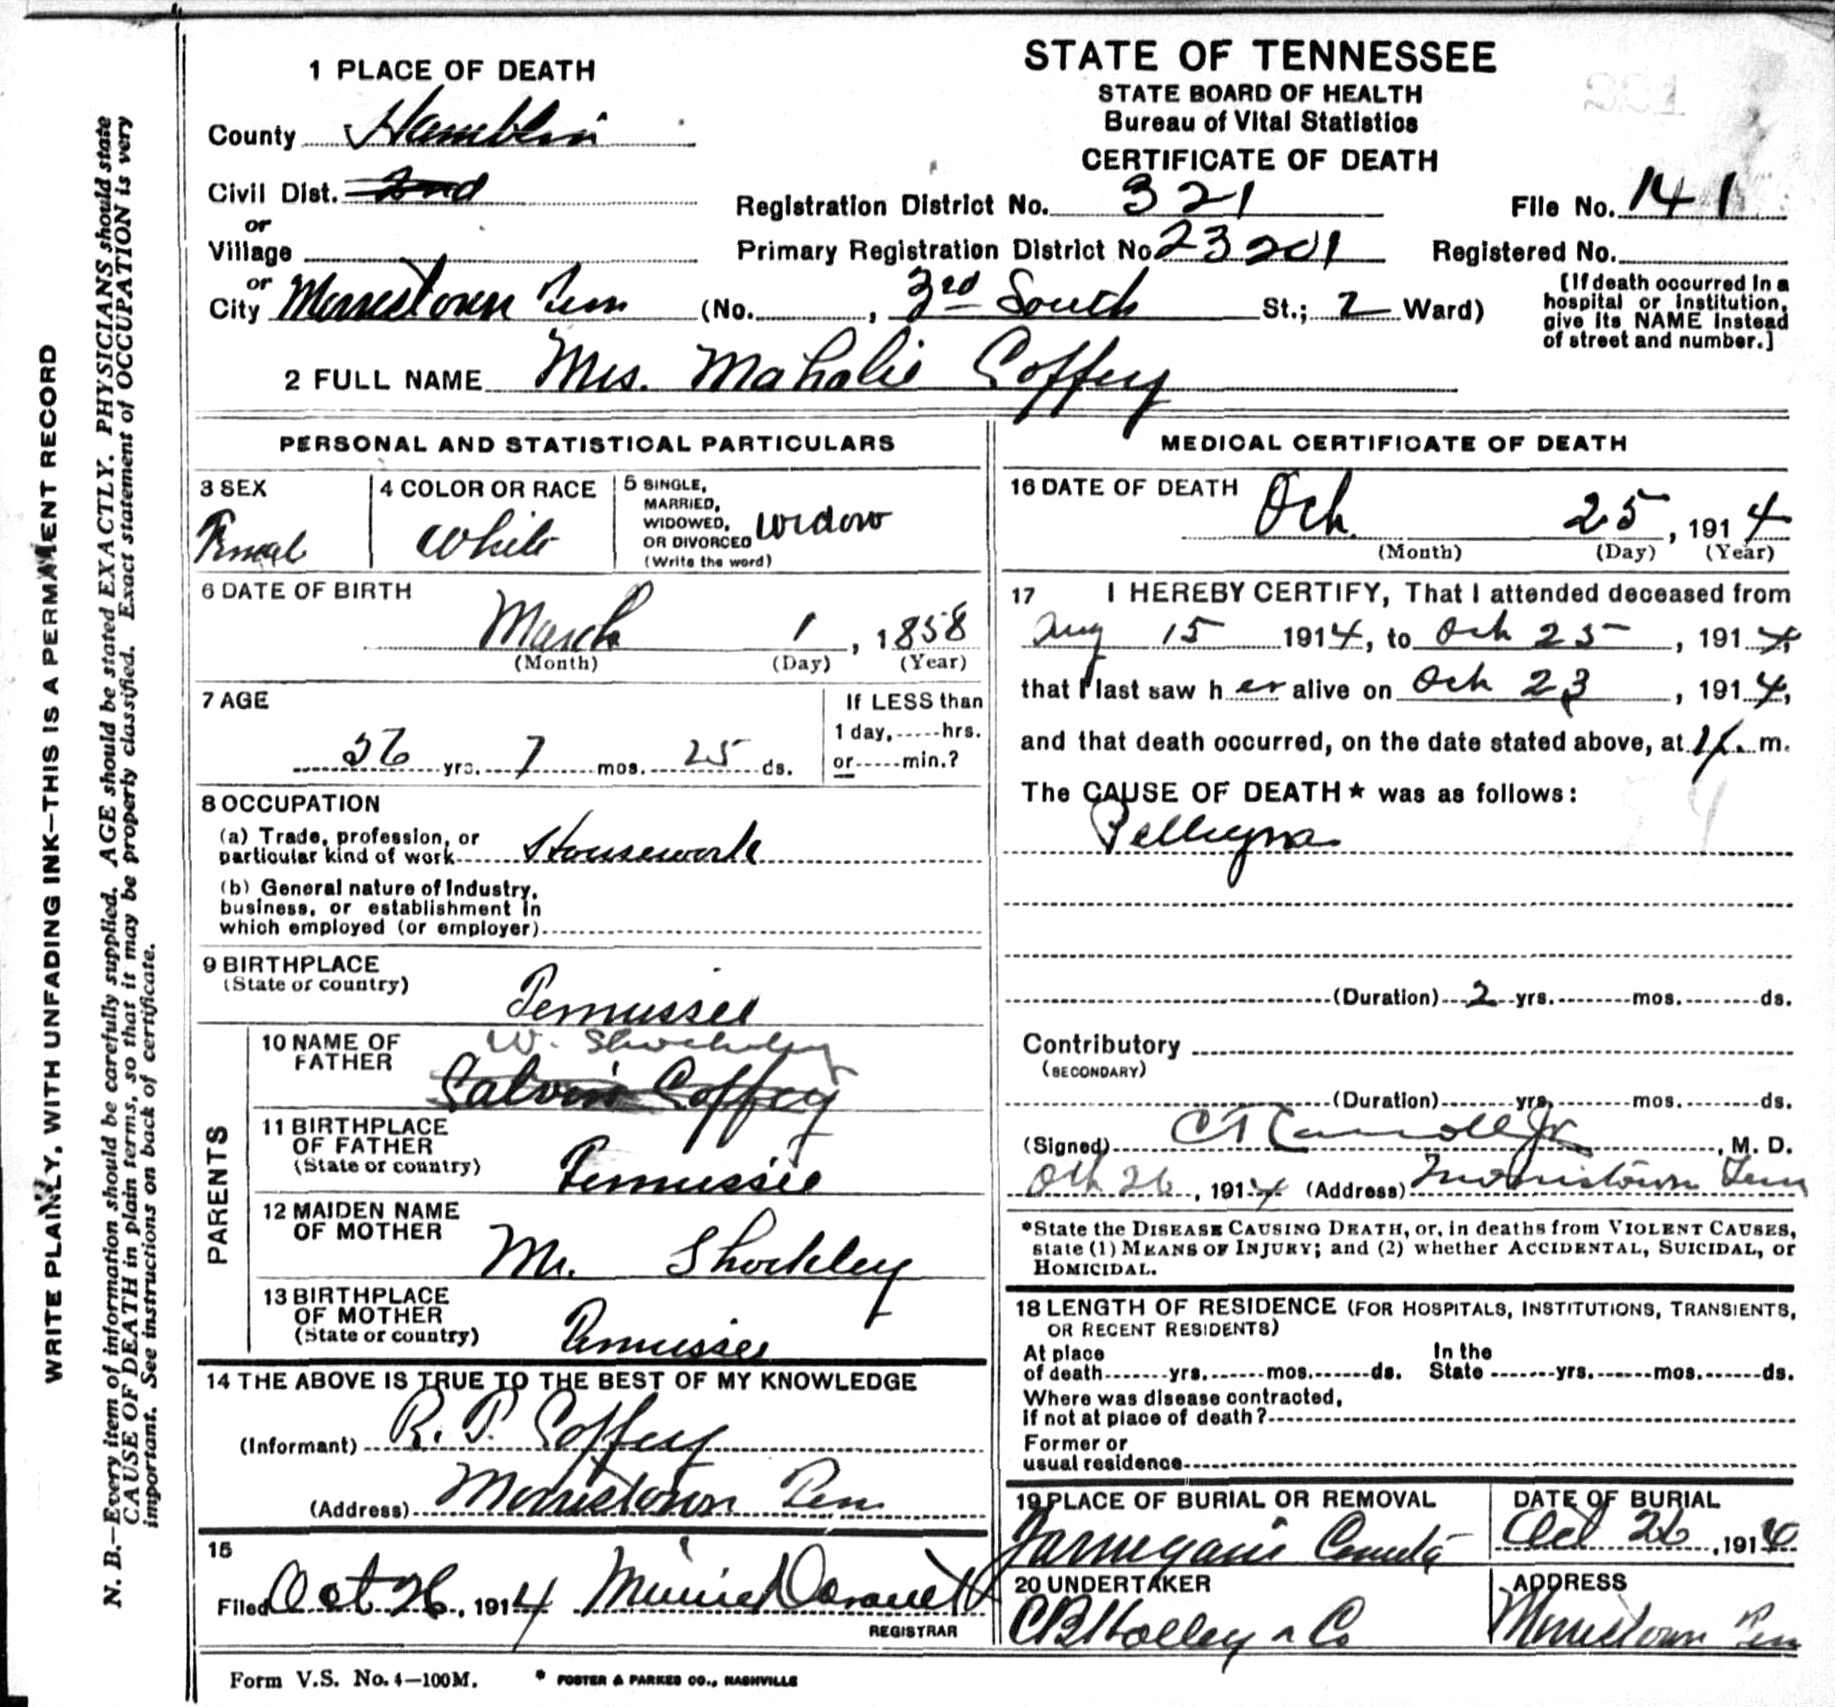 STATE OF TENNESSEE
STATE BOARD OF HEALTH
Bureau of Vital Statistics
CERTIFICATE OF DEATH
1 PLACE OF DEATH
County Hamblin
Civil Dist. 2nd
or
Village
or
City Morristown Tenn (No. , 3rd South St.; 2 Ward)
Registration District No. 321 File No. 141
Primary Registration District No 23201 Registered No.
[If death occurred in a
hospital or institution,
give its NAME instead
of street and number.]
2 FULL NAME Mrs. Mahalie Coffey
PERSONAL AND STATISTICAL PARTICULARS
3 SEX
Femal
4 COLOR OR RACE
White
5 SINGLE,
MARRIED,
WIDOWED,
OR DIVORCED
(Write the word)
widow
6 DATE OF BIRTH
March 1, 1858
(Month) (Day) (Year)
7 AGE
56 yrs. 7 mos. 25 ds.
If LESS than
1 day, hrs.
or min.?
8 OCCUPATION
(a) Trade, profession, or
particular kind of work Housework
(b) General nature of Industry,
business, or establishment in
which employed (or employer)
9 BIRTHPLACE
(State or country)
Tennessee
PARENTS
10 NAME OF
FATHER
W. Shockley
Calvin Coffey
11 BIRTHPLACE
OF FATHER
(State or country)
Tennessee
12 MAIDEN NAME
OF MOTHER
Mr. Shockley
13 BIRTHPLACE
OF MOTHER
(State or country)
Tennessee
14 THE ABOVE IS TRUE TO THE BEST OF MY KNOWLEDGE
(Informant) R. P. Coffey
(Address) Morristown Tenn
15
Filed Oct 26, 1914 Minnie
REGISTRAR
MEDICAL CERTIFICATE OF DEATH
16 DATE OF DEATH
Oct. 25, 1914
(Month) (Day) (Year)
17 I HEREBY CERTIFY, That I attended deceased from
Aug 15 1914, to Oct 25, 1914,
that I last saw her alive on Oct 23, 1914,
and that death occurred, on the date stated above, at m.
The CAUSE OF DEATH* was as follows:
Pellegra
(Duration) 2 yrs. mos. ds.
Contributory
(SECONDARY)
(Duration) yrs. mos. ds.
(Signed) C T Carroll Jr, M. D.
Oct 26, 1914 (Address) Morristown Tenn
*State the DISEASE CAUSING DEATH, or, in deaths from VIOLENT CAUSES,
state (1) MEANS OF INJURY; and (2) whether ACCIDENTAL, SUICIDAL, or
HOMICIDAL.
18 LENGTH OF RESIDENCE (FOR HOSPITALS, INSTITUTIONS, TRANSIENTS,
OR RECENT RESIDENTS)
At place
of death yrs. mos. ds.
In the
State yrs. mos. ds.
Where was disease contracted,
if not at place of death?
Former or
usual residence
19 PLACE OF BURIAL OR REMOVAL
Jarnegans
DATE OF BURIAL
Oct 26, 191
20 UNDERTAKER
C B Holley & Co
ADDRESS
Morristown Tenn
Form V.S. No. 4—100M. * FOSTER & PARKES CO., NASHVILLE
WRITE PLAINLY, WITH UNFADING INK—THIS IS A PERMANENT RECORD
N. B.—Every item of information should be carefully supplied. AGE should be stated EXACTLY. PHYSICIANS should state
CAUSE OF DEATH in plain terms, so that it may be properly classified. Exact statement of OCCUPATION is very
important. See instructions on back of certificate.